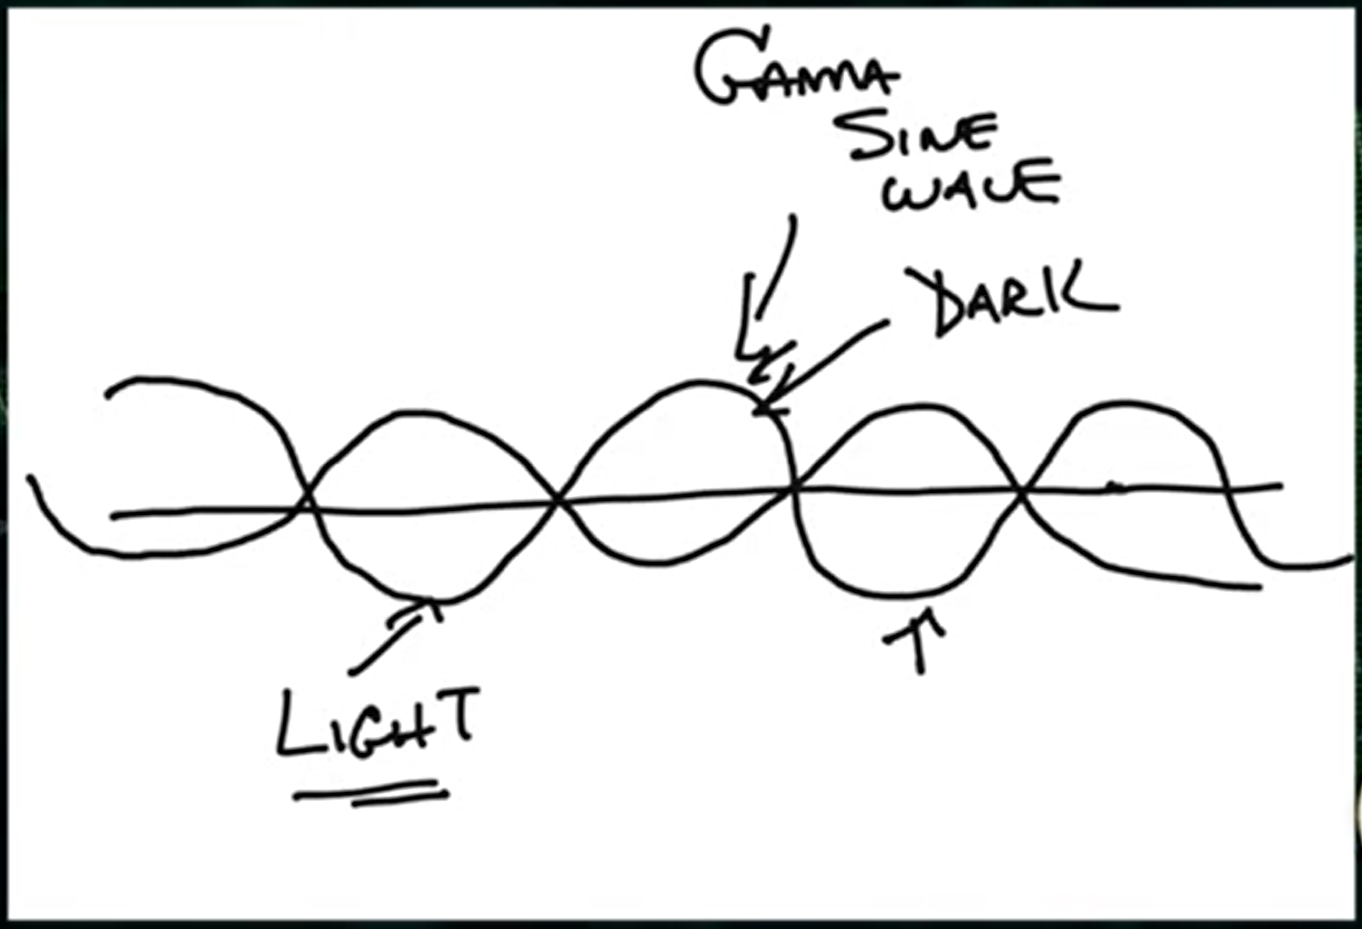 GAMMA
SINE
WAVE
DARK
LIGHT